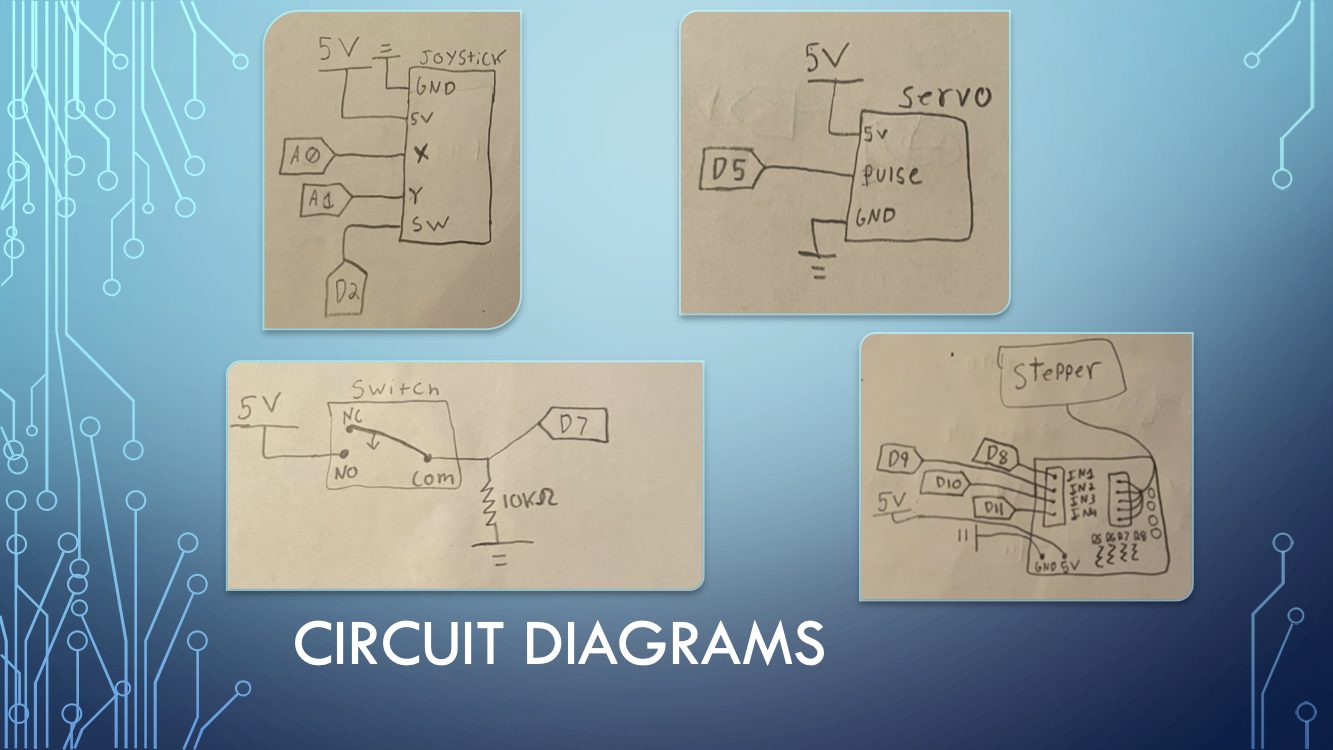 5V
JOYSTICK
GND
5V
A0
X
A1
Y
SW
D2
5V
servo
5V
D5
Pulse
GND
Switch
5V
NC
NO
Com
D7
10KΩ
Stepper
D9
D8
IN1
D10
IN2
IN3
5V
D11
IN4
D5 D6 D7 D8
GND 5V
CIRCUIT DIAGRAMS